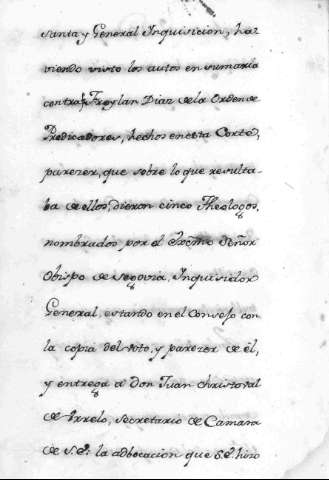 santa y General Inquisicion, ha=
viendo visto los autos en sumaria
contra Fr. Froylan Diaz de la Orden de
Predicadores, hechos en esta Corte,
parezer, que sobre lo que resulta=
ba de ellos, dieron cinco Theologos,
nombrados por el Exc.mo Señor
Obispo de Segovia, Inquisidor
General, estando en el Consejo con
la copia del voto, y parezer de él,
y entrega a Don Juan Christoval
de, Secretario de Camara
de S.E. la adbocacion que S.E. hizo